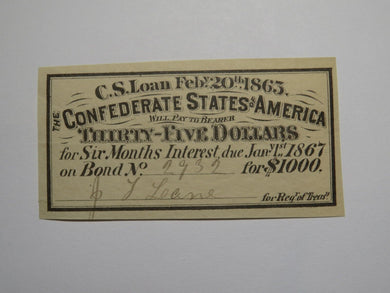 C.S. Loan Feby. 20th. 1863.
THE CONFEDERATE STATES OF AMERICA
WILL PAY TO BEARER
THIRTY-FIVE DOLLARS
for Six Months Interest, due Jany. 1st. 1867
on Bond No. 2932 for $1000.
for Regr. of Treasy.